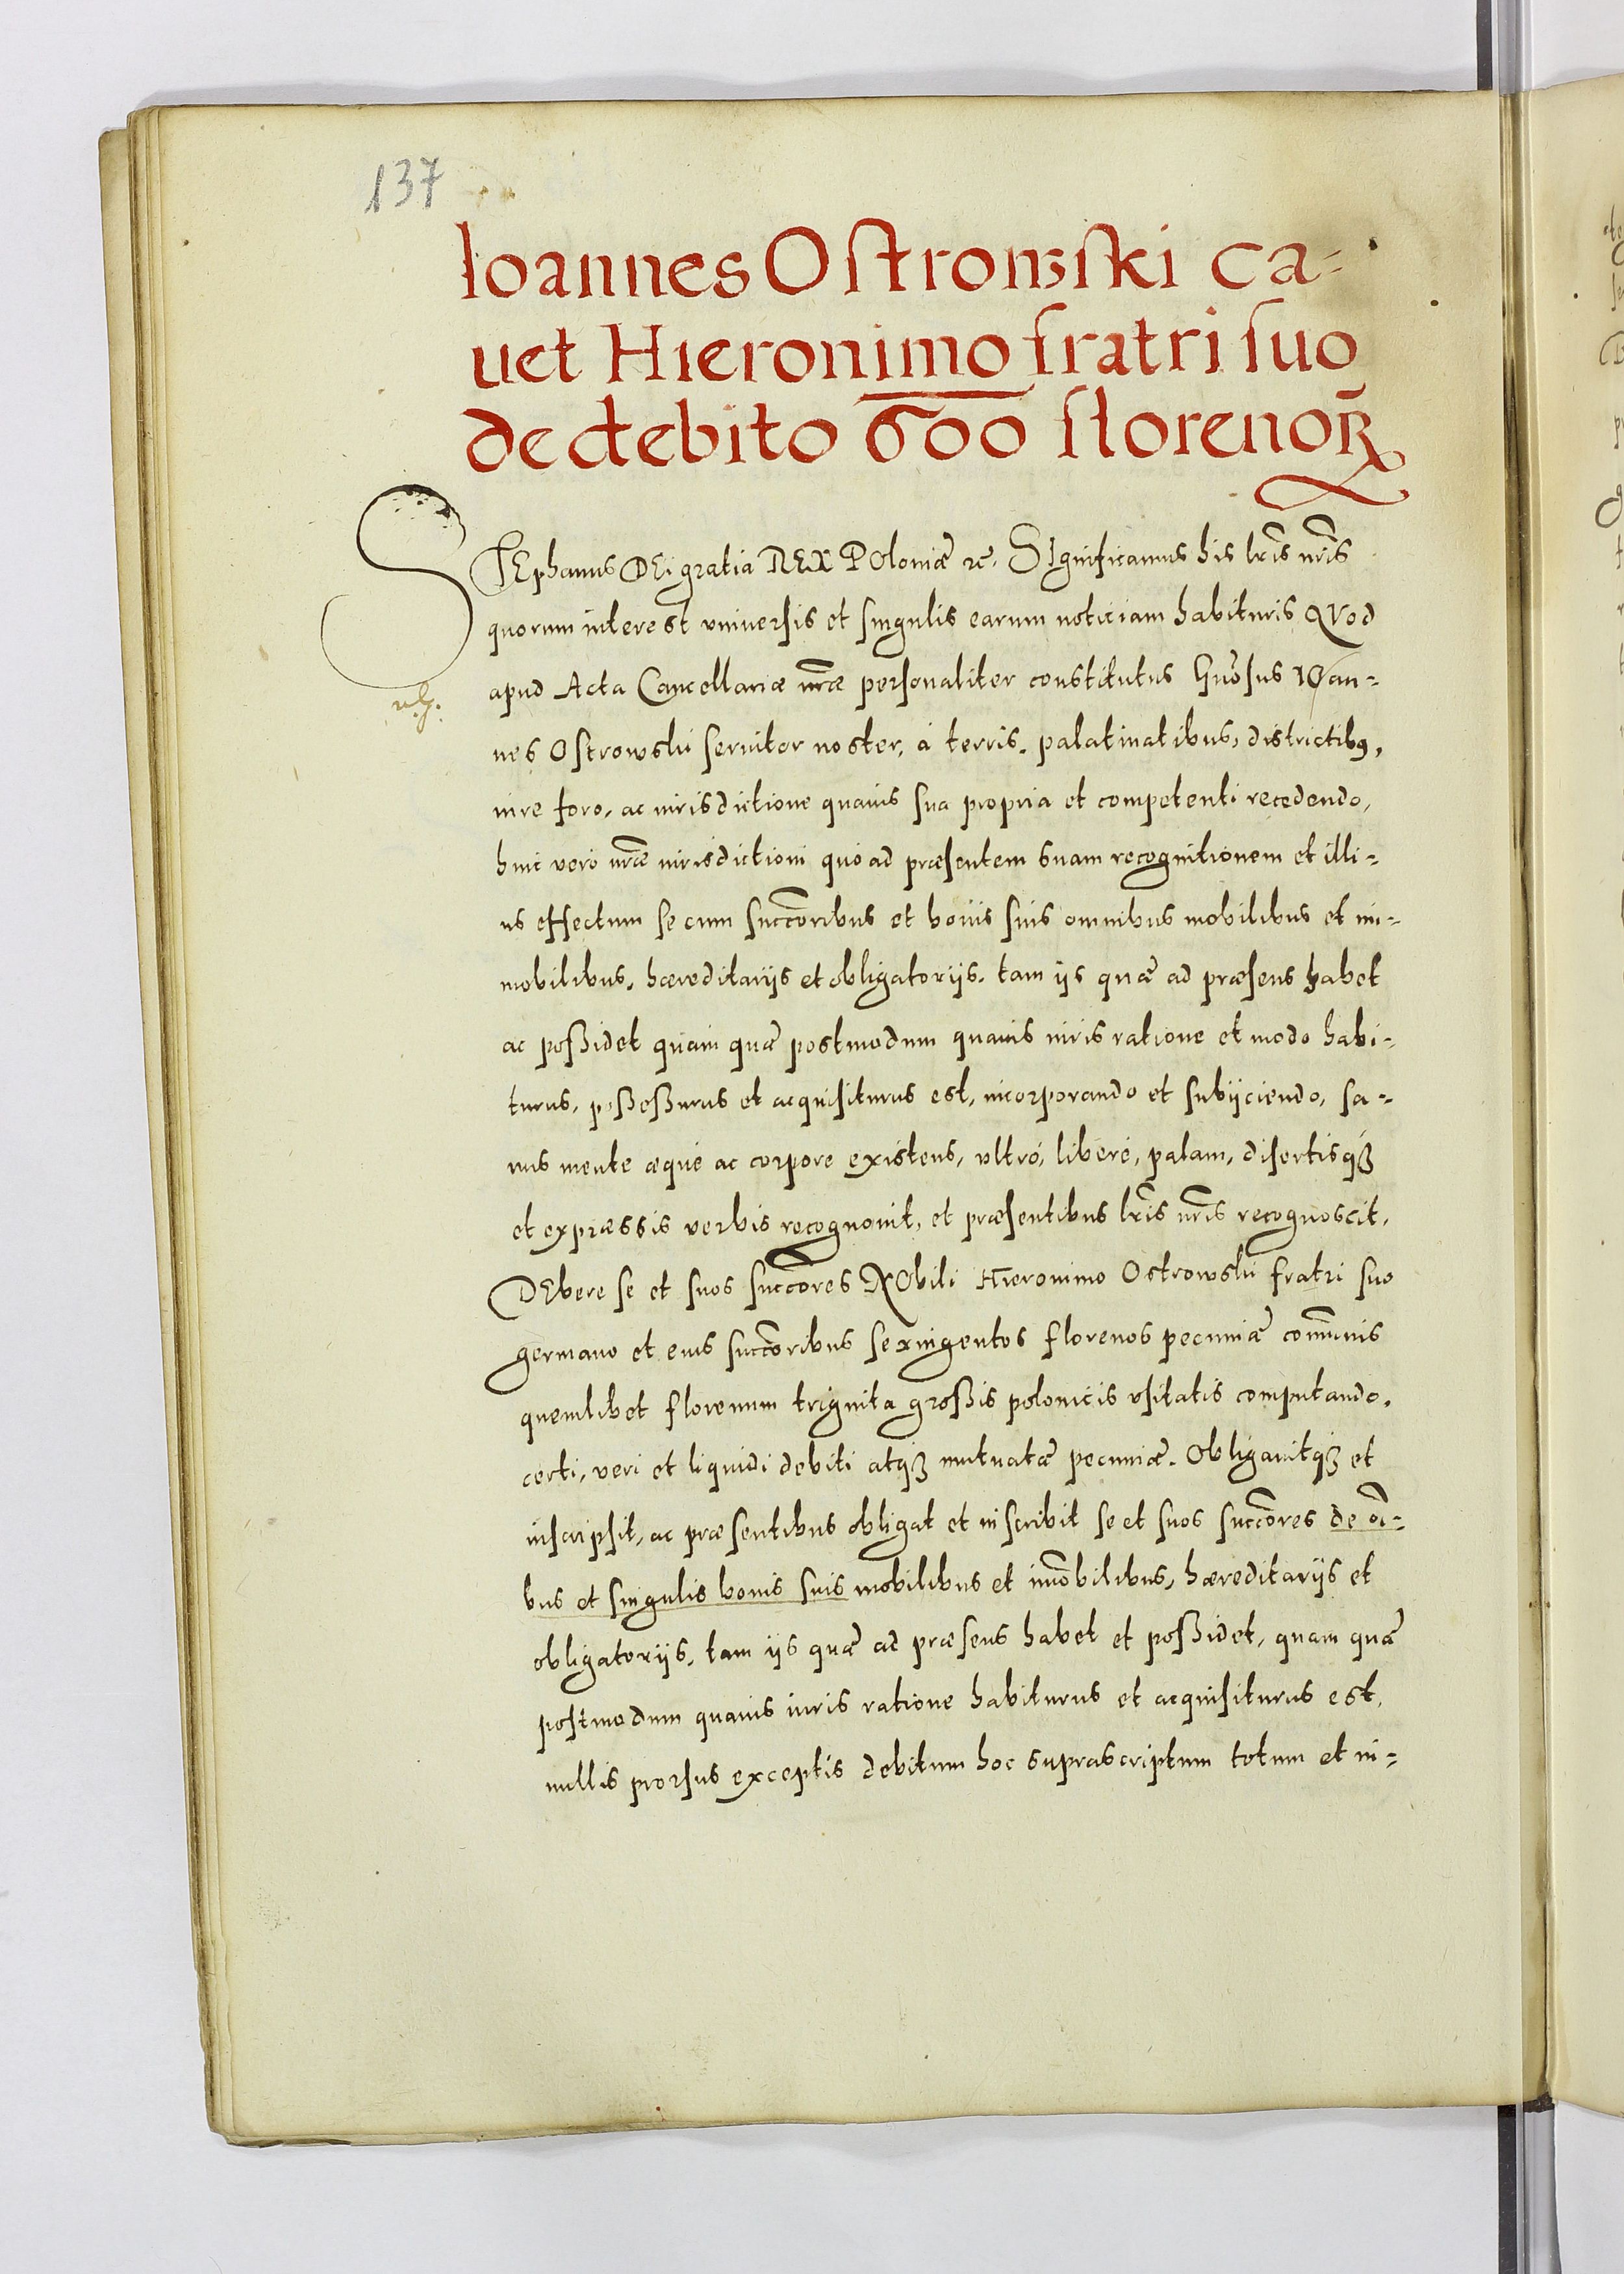 137
Ioannes Ostrowski ca-
uet Hieronimo fratri suo
de debito 600 florenoꝝ
STEphanus DEi gratia REX POloniæ ꝛc̃. SIgnificamus his lr̃is nr̃is
quorum interest vniuersis et singulis earum noticiam habituris QVod
apud Acta Cancellariæ nr̃æ personaliter constitutus Gn̄osus IOan-
nes Ostrowski seruitor noster, à terris, palatinatibus, districtibꝰ,
iure foro, ac iurisdictione quauis sua propria et competenti recedendo,
huic verò nr̃æ iurisdictioni quò ad præsentem suam recognitionem et illi-
us effectum se cum succ̄oribus et bonis suis omnibus mobilibus et im-
mobilibus, hæreditarijs et obligatorijs, tam ijs quæ ad præsens habet
ac poßidet quàm quæ postmodum quauis iuris ratione et modo habi-
turus, poßeßurus et acquisiturus est, incorporando et subijciendo, sa-
nus mente æquè ac corpore existens, vltrò, liberè, palam, disertisqꝫ
et expræssis verbis recognouit, et præsentibus lr̃is nr̃is recognoscit,
DEbere se et suos succ̄ores NObili Hieronimo Ostrowski fratri suo
germano et eius succ̄oribus sexingentos florenos pecuniæ com̄unis
quemlibet florenum triginta großis polonicis vsitatis computando,
certi, veri et liquidi debiti atqꝫ mutuatæ pecuniæ. Obligauitqꝫ et
inscripsit, ac præsentibus obligat et inscribit se et suos succ̄ores de oī-
bus et singulis bonis suis mobilibus et im̄obilibus, hæreditarijs et
obligatorijs, tam ijs quæ ad præsens habet et poßidet, quam quæ
postmodum quauis iuris ratione habiturus et acquisiturus est,
nullis prorsus exceptis debitum hoc suprascriptum totum et in-